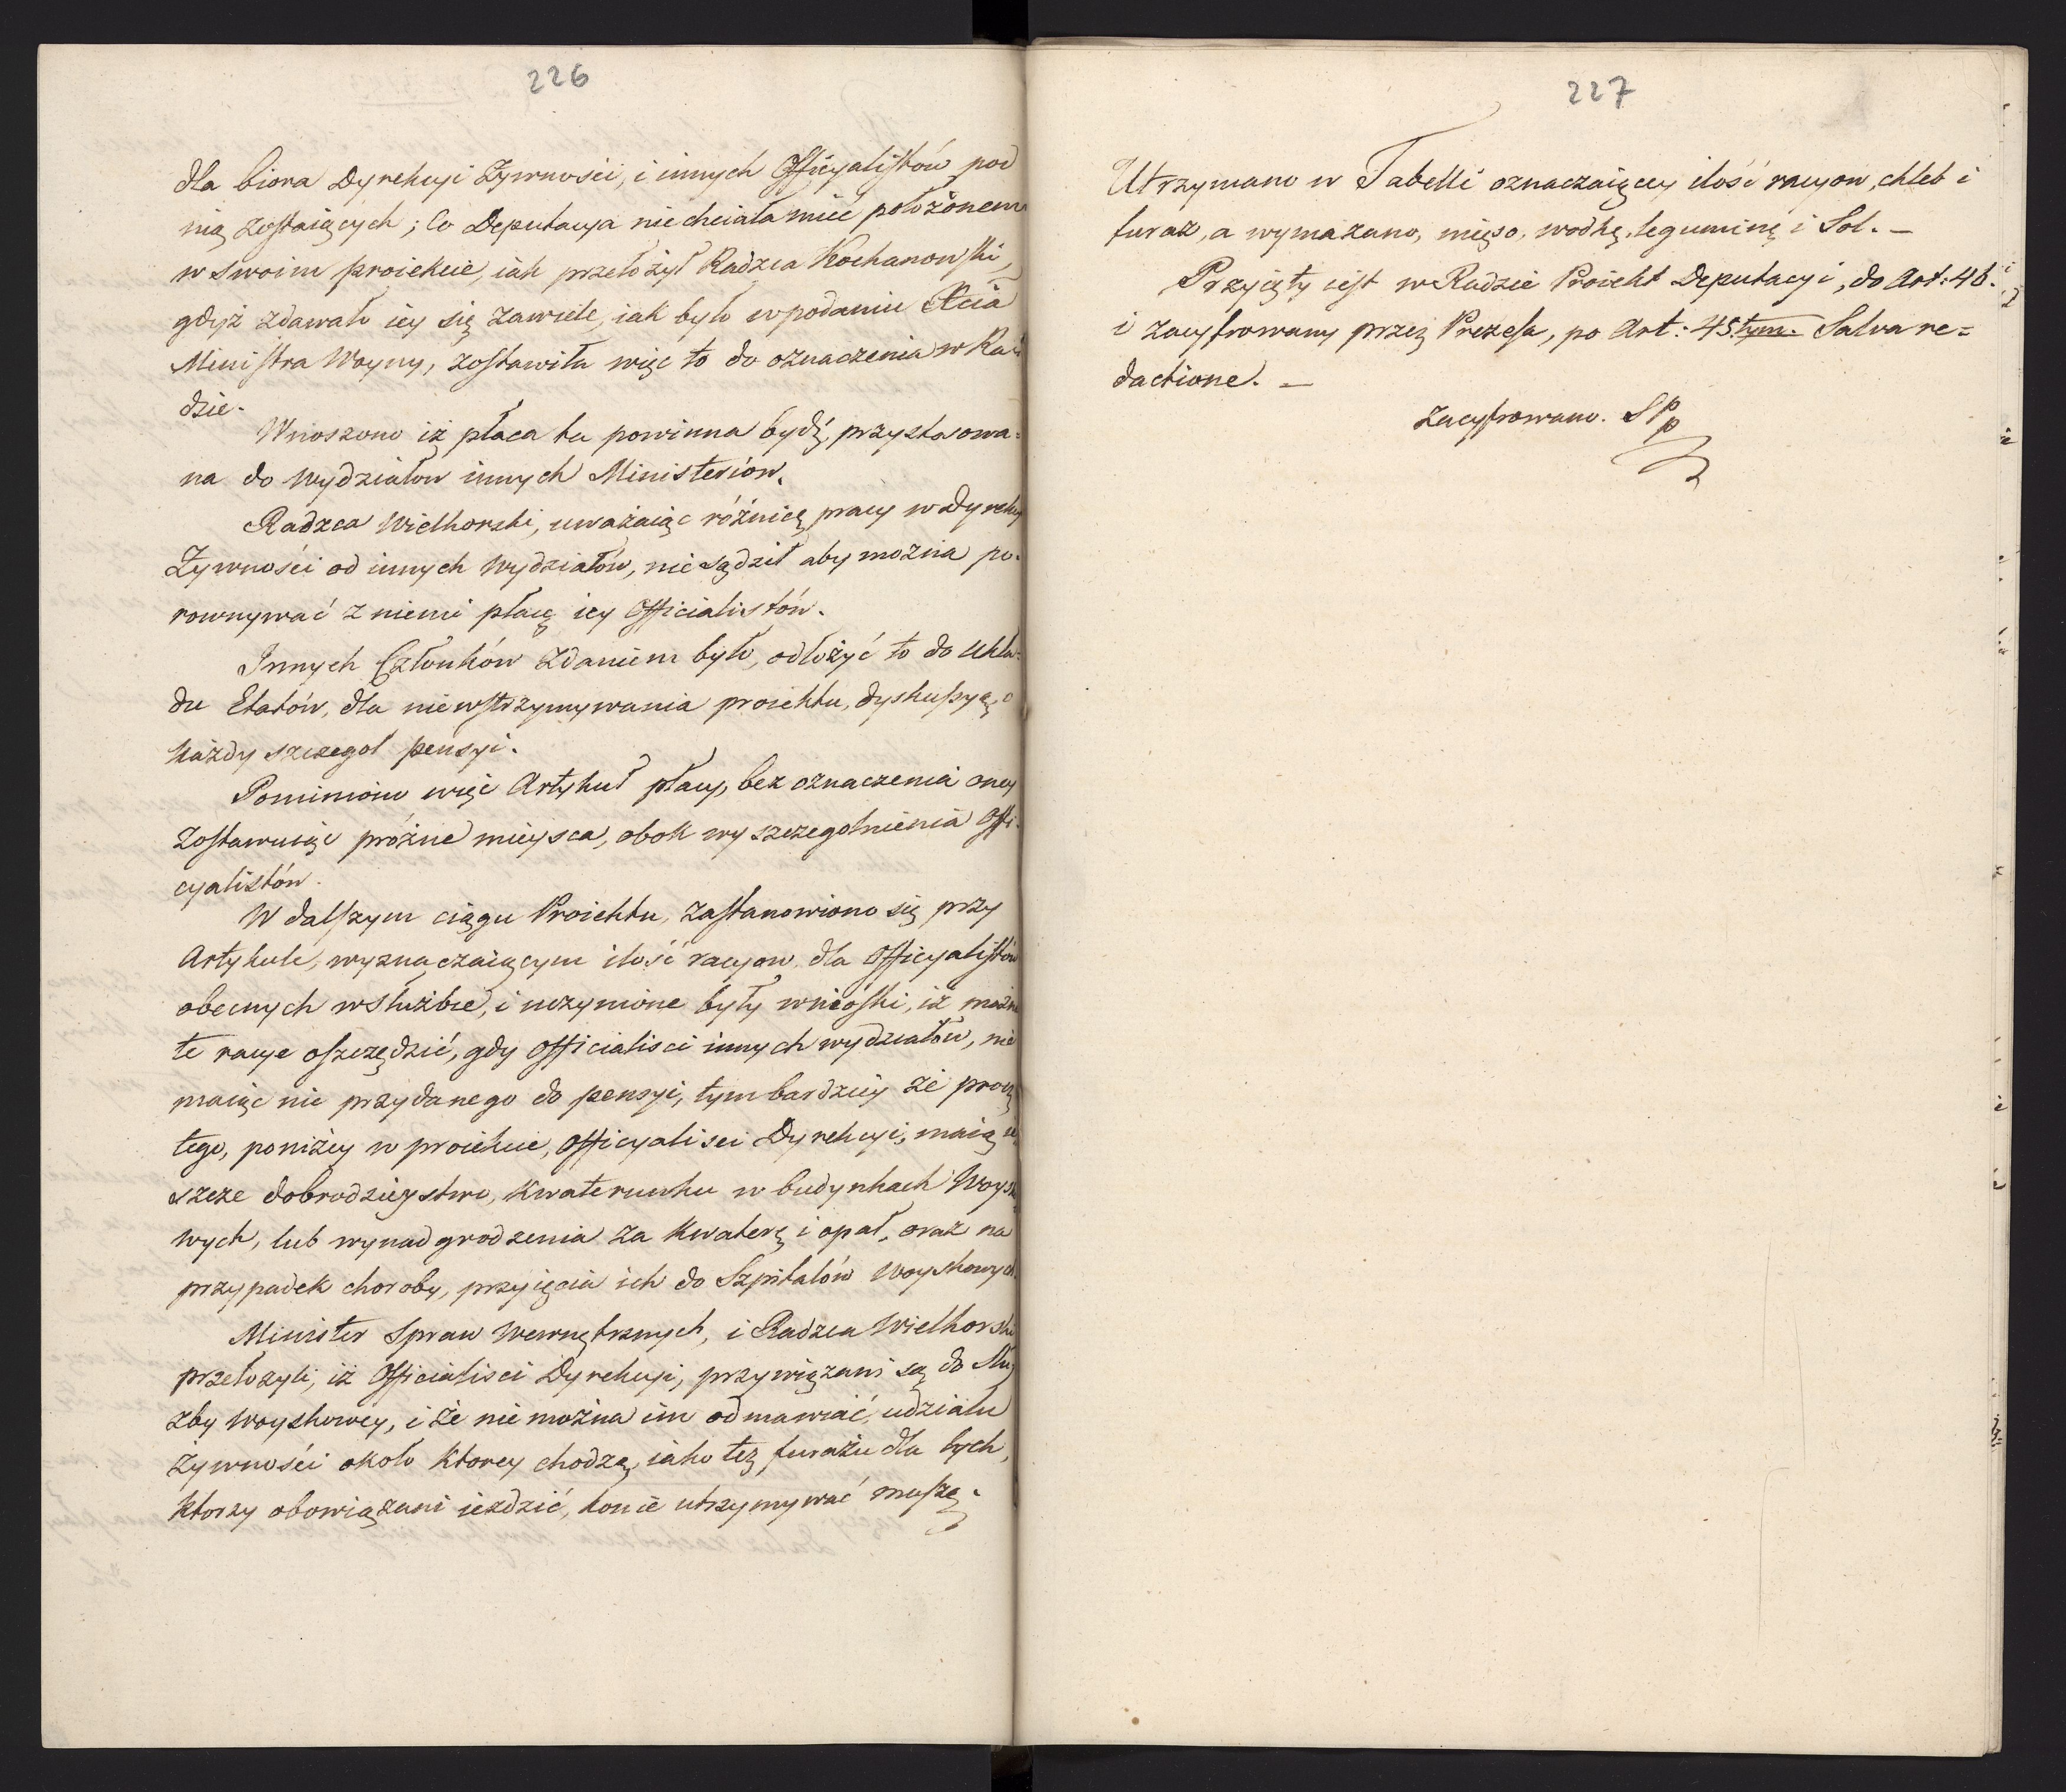 226
dla biora Dyrekcyi Żywności, i innych Officyalistów pod
nią zostaiących; Co Deputacya nie chciała mieć położonem
w swoim proiekcie, iak przełożył Radzca Kochanowski,
gdyż zdawało iey się zawiele, iak było w podaniu Xcia
Ministra Woyny, zostawiła więc to do oznaczenia w Ra=
dzie.
Wnoszono iż płaca ta powinna bydź, przystosowa=
na do Wydziałow innych Ministeriów.
Radzca Wielhorski, uważaiąc różnicę pracy w Dyrekcy
Żywności od innych Wydziałów, nie sądził aby można po=
rownywać z niemi płacę iey Officialistów.
Innych Członków zdaniem było, odłożyć to do Ukła=
du Etatów, dla niewstrzymywania proiektu, dyskussyą o
każdy szczegoł pensyi.
Pominiono więc Artykuł płacy, bez oznaczenia oney
zostawuiąc próżne mieysca, obok wyszczegolnienia Offi=
cyalistów.
W dalszym ciągu Proiektu, zastanowiono się przy
Artykule, wyznaczaiącym ilość racyow dla Officyalistów
obecnych w służbie, i uczynione były wnioski, iż można
te racye oszczędzić, gdy Officialisci innych wydziałów, nie
maiąc nic przydanego do pensyi, tym bardziey że procz
tego, poniżey w proiekcie, Officyalisci Dyrekcyi, maią ie
szcze dobrodzieystwo, Kwaterunku w budynkach Woysko
wych, lub wynadgrodzenia za Kwaterę i opał, oraz na
przypadek choroby, przyięcia ich do Szpitalów Woyskowych.
Minister Spraw Wewnętrznych, i Radzca Wielhorski
przełozyli, iż Officialisci Dyrekcyi, przywiązani są do Słu=
zby Woyskowey, i że nie można im odmawiać, udziału
żywności około Ktorey chodzą, iako też furażu dla tych,
Ktorzy obowiązani iezdzić, konie utrzymywać muszą.
227
Utrzymano w Tabelli oznaczaiącey ilość racyow, chleb i
furaz, a wymazano, mięso, wodkę, leguminę i Sol. –
Przyięty iest w Radzie Proiekt Deputacyi, do Art: 46.
i zacyfrowany przez Prezesa, po Art: 45. tym. Salva re=
dactione. –
Zacyfrowano. SPp